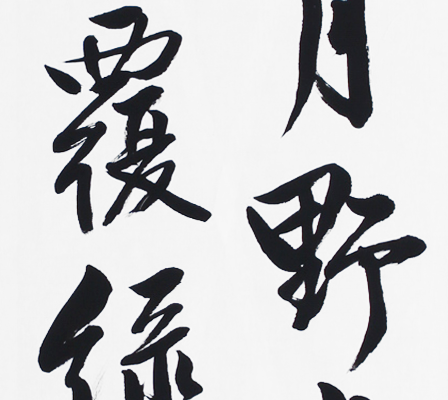 月野
覆緑